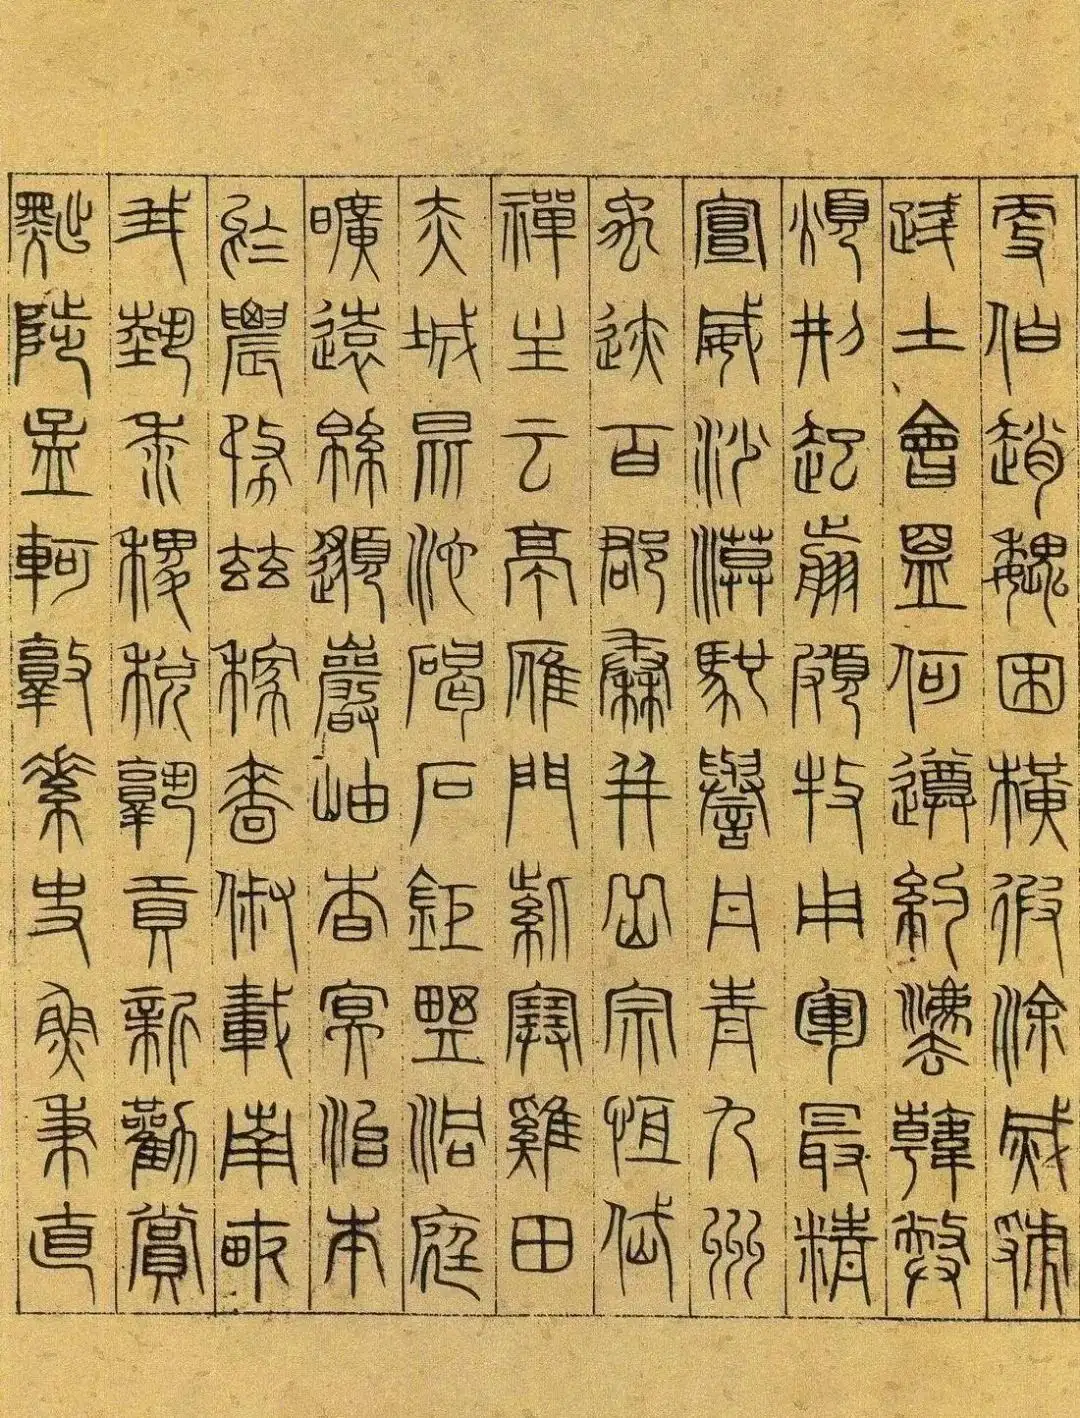 更伯趙魏困橫假涂滅虢
踐土會盟何遵約法韓弊
煩刑起翦頗牧用軍最精
宣威沙漠馳譽丹青九州
禹迹百郡秦并岳宗恆岱
禪主云亭雁門紫塞雞田
赤城昆池碣石鉅野洞庭
曠遠緜邈巖岫杳冥治本
於農務茲稼嗇俶載南畝
我藝黍稷稅孰貢新勸賞
黜陟孟軻敦素史魚秉直